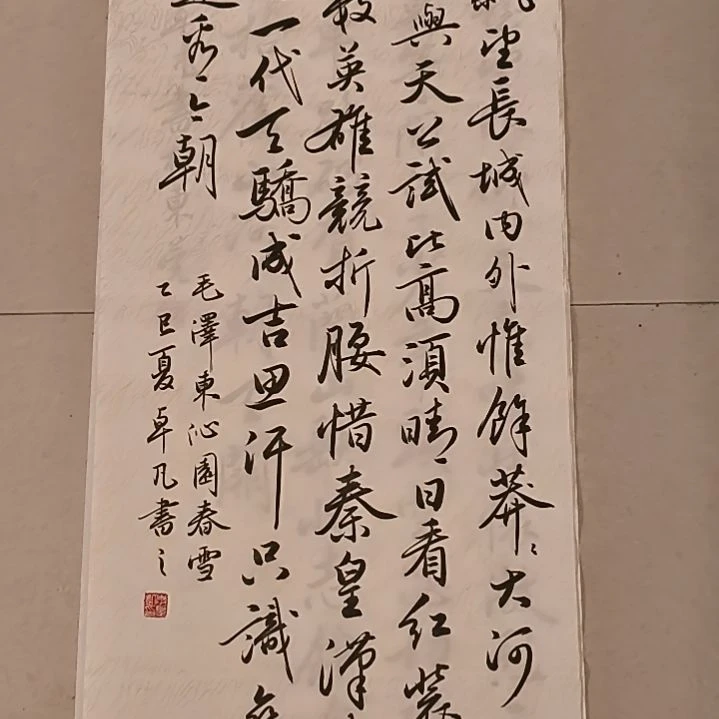 望長城内外惟餘莽〻大河
與天公試比高須晴日看紅裝
英雄競折腰惜秦皇漢
一代天驕成吉思汗只識
還看今朝
毛澤東沁園春雪
乙巳夏卓凡書之